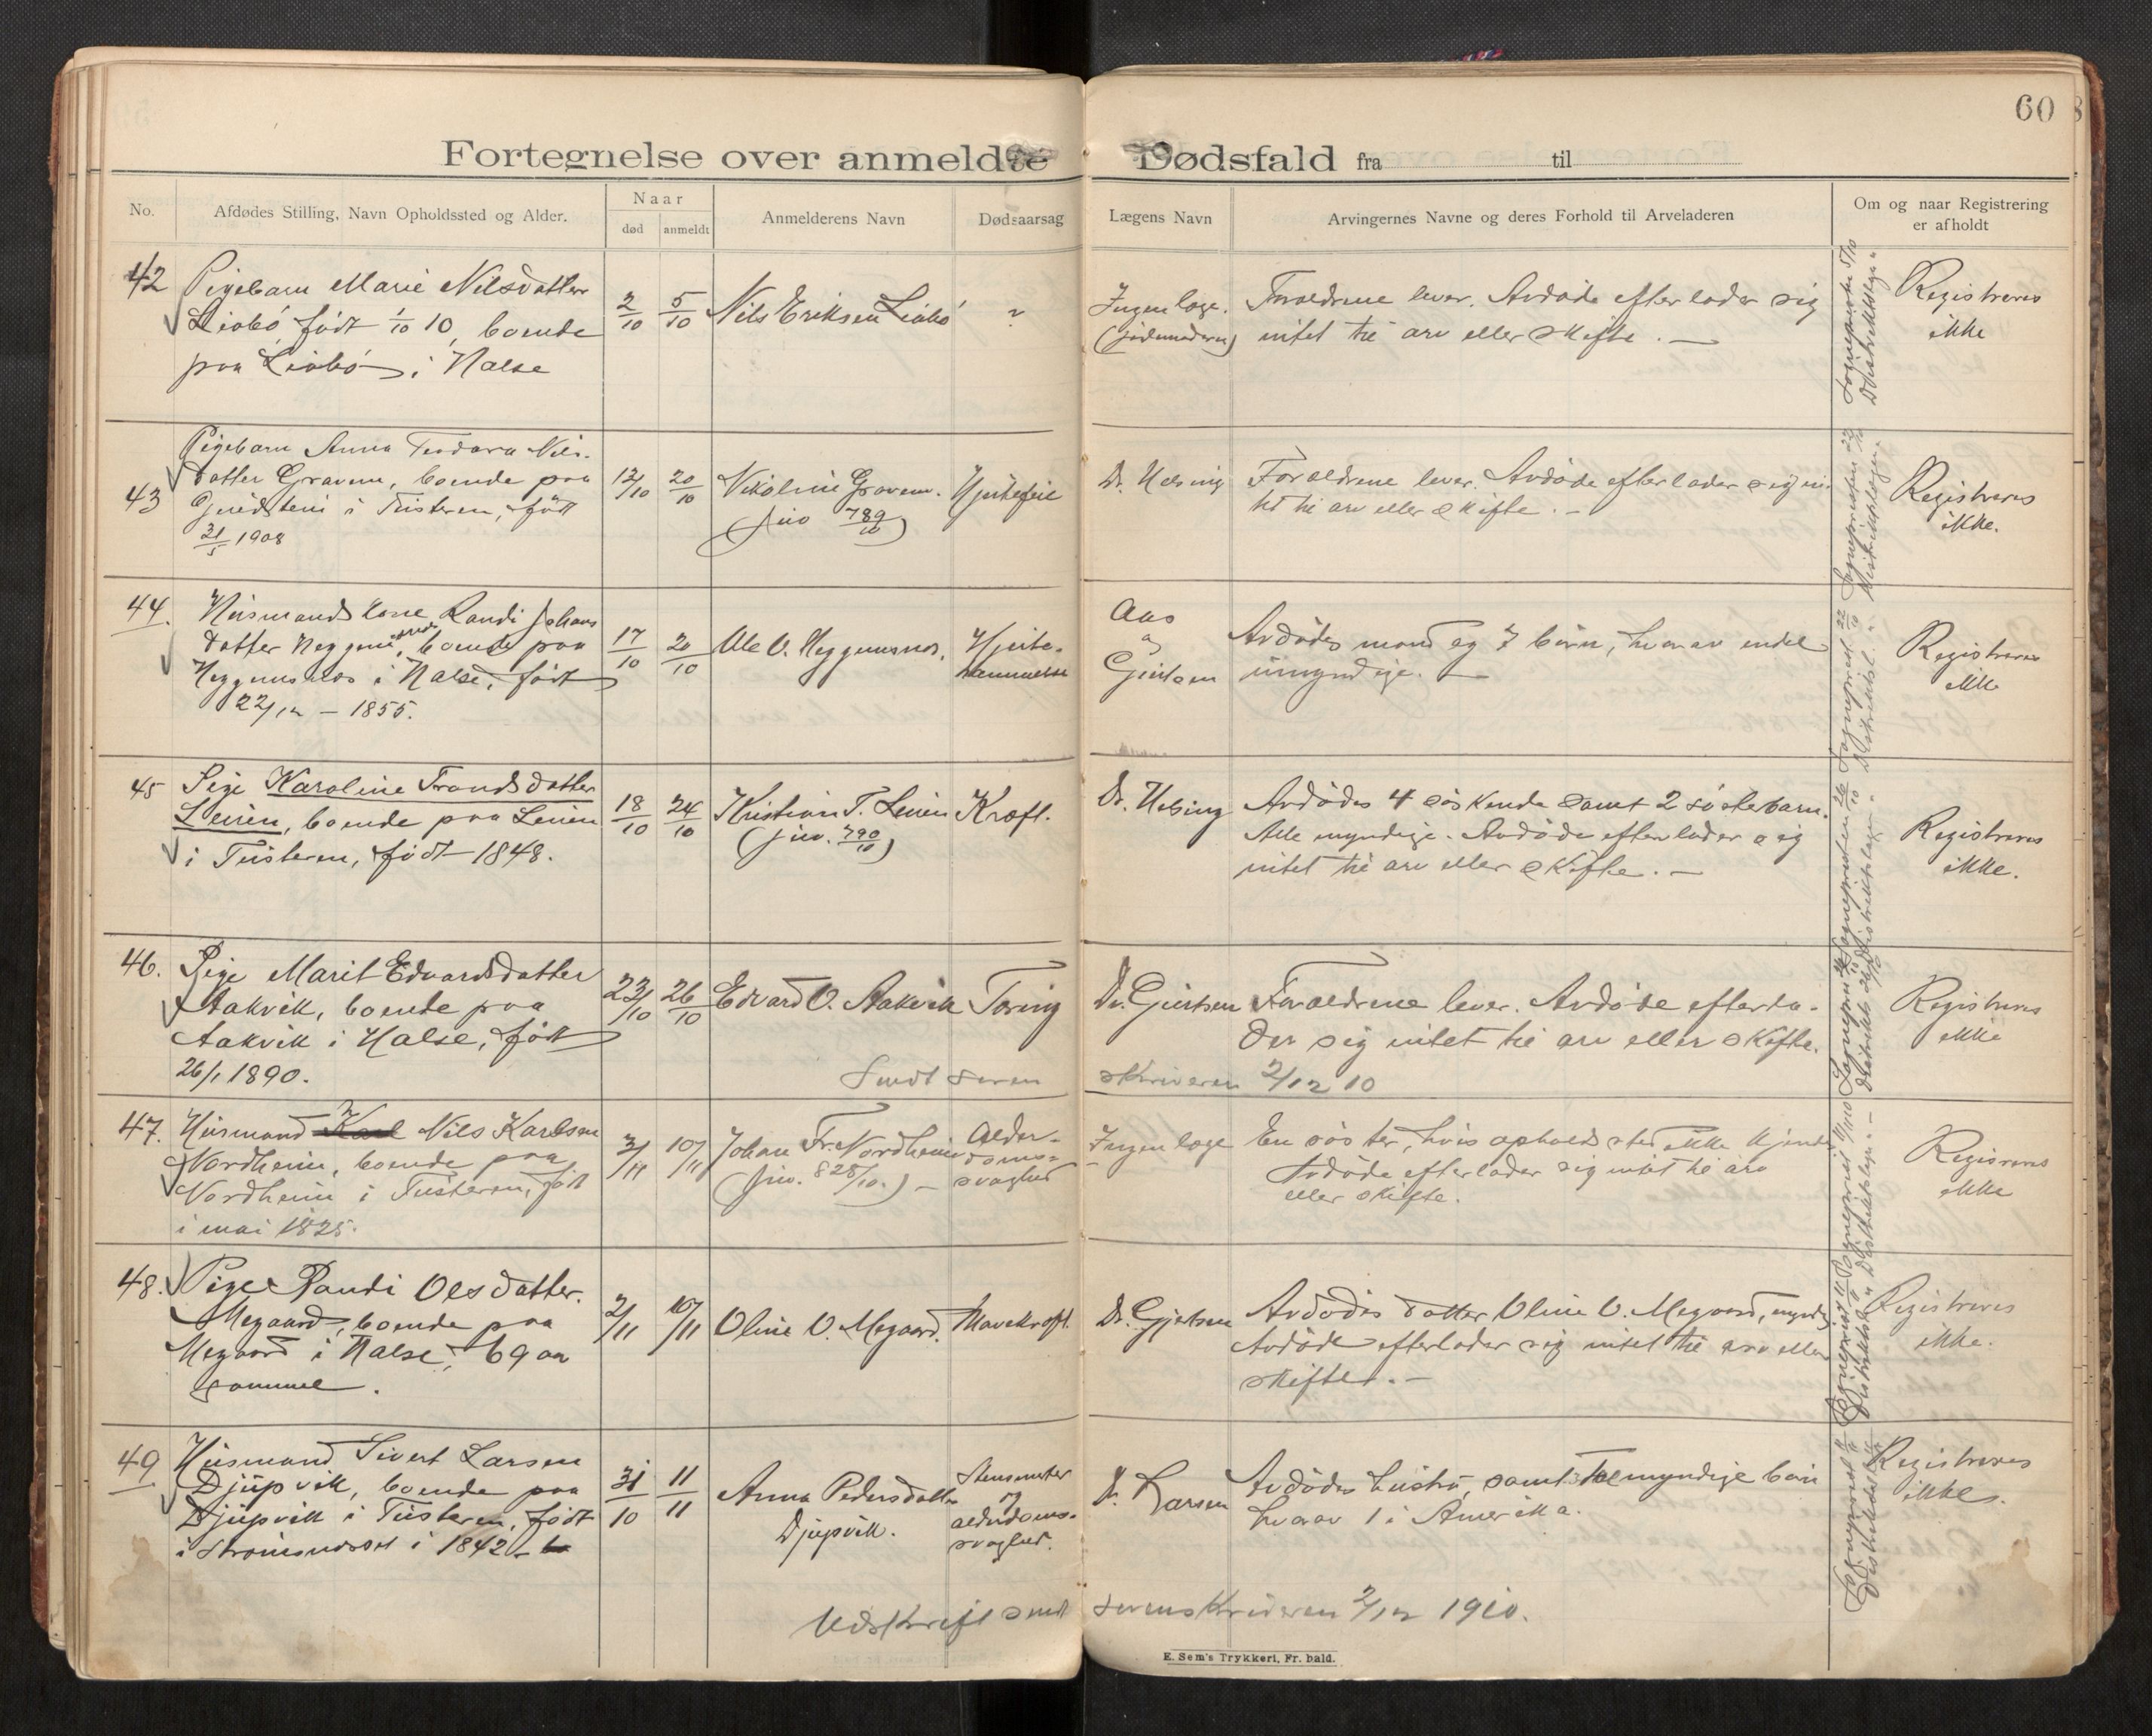 60
Fortegnelse over anmeldte Dødsfald fra til
No.
Afdødes Stilling, Navn Opholdssted og Alder.
Naar
død
anmeldt
Anmelderens Navn
Dødsaarsag
Lægens Navn
Arvingernes Navne og deres Forhold til Arveladeren
Om og naar Registrering
er afholdt
42
Pigebarn Marie Nilsdatter
Liabö født 1/10 10, boende
paa Liabö i Halse
2/10
5/10
Nils Eriksen Liabö
?
Ingen læge.
(jødemoderen)
Forældrene lever. Avdøde efterlader sig
intet til arv eller skifte. —
Registreres
ikke
43
Pigebarn Anna Teodora Nils-
datter Gravem, boende paa
i Tusteren, født
31/5 1908
12/10
20/10
Nikoline Gravem.
(jno 789/10)
Hjertefeil
Dr. Helsing
Forældrene lever. Avdøde efterlader sig in-
tet til arv eller skifte. -
Registreres
ikke.
44.
Husmandskone Randi Johans
datter Heggem, boende paa
Heggemsnes i Halse, født
22/12 - 1855.
17/10
20/10
Ole O. Heggemsnes.
Hjerte-
lammelse
Aas
og
Gjertsen
Avdødes mand og 7 børn, hvorav endel
umyndige. —
Registreres
ikke
45
Pige Karoline Trondsdatter
Leirin, boende paa Leirin
i Tusteren, født 1848.
18/10
24/10
Kristian T. Leirin
(jno. 790/10)
Kræft.
Dr. Helsing
Avdødes 4 søskende samt 2 søstebarn.
Alle myndige. Avdøde efterlader sig
intet til arv eller skifte. —
Registreres
ikke.
46.
Pige Marit Edvardsdatter
Aakvik, boende paa
Aakvik i Halse, født
26/1 1890.
23/10
26/10
Edvard O. Aakvik
Tæring
Dr. Gjertsen
Forældrene lever. Avdøde efterla-
der sig intet til arv eller skifte.
Registreres
ikke
Sendt soren skriveren 2/12 10
47.
Husmand Karl Nils Karlsen
Nordheim, boende paa
Nordheim i Tusteren, født
i mai 1825.
3/11
10/11
Johan Fr. Nordheim
(jno. 828/10.) -
Alder-
doms-
svaghed
Ingen læge
En søster, hvis opholdssted ikke kjendes
Avdøde efterlader sig intet til arv
eller skifte.
Regisreres
ikke
48.
Pige Randi Olsdatter.
Megaard, boende paa
Megaard i Halse, 69 aa
gammel.
2/11
10/11
Oline O. Megaard.
Mavekræft.
Dr. Gjertsen
Avdødes datter Oline O. Megaard, myndig.
Avdøde efterlader sig intet til arv eller
skifte. —
Registreres
ikke.
49
Husmand Sivert Larsen
Djupvik, boende paa
Djupvik i Tusteren, født
i Strømsneset i 1842 -
31/10
11/11
Anna Pedersdatter
Djupvik.
og
alderdoms-
svaghed.
Dr. Larsen
Avdødes hustru, samt myndige børn
hvorav 1 i Amerika.
Registreres
ikke.
Udskrift sendt sorenskriveren 2/12 1910.
E. Sem's Trykkeri, Fr. hald.